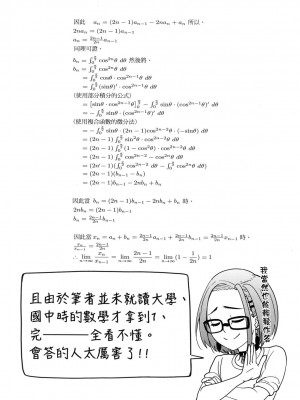 因此 aₙ = (2n − 1)aₙ₋₁ − 2naₙ + aₙ 所以,
2naₙ = (2n − 1)aₙ₋₁
aₙ = \frac{2n−1}{2n}aₙ₋₁
同理可證,
bₙ = ∫₀^{\frac{π}{2}} cos²ⁿθ dθ 然後將,
bₙ = ∫₀^{\frac{π}{2}} cos²ⁿθ dθ
= ∫₀^{\frac{π}{2}} cosθ · cos²ⁿ⁻¹θ dθ
= ∫₀^{\frac{π}{2}} (sinθ)′ · cos²ⁿ⁻¹θ dθ
(使用部分積分的公式)
= [sinθ · cos²ⁿ⁻¹θ]₀^{\frac{π}{2}} − ∫₀^{\frac{π}{2}} sinθ · (cos²ⁿ⁻¹θ)′ dθ
= − ∫₀^{\frac{π}{2}} sinθ · (cos²ⁿ⁻¹θ)′ dθ
(使用複合函數的微分法)
= − ∫₀^{\frac{π}{2}} sinθ · (2n − 1)cos²ⁿ⁻²θ · (−sinθ) dθ
= (2n − 1) ∫₀^{\frac{π}{2}} sin²θ · cos²ⁿ⁻²θ dθ
= (2n − 1) ∫₀^{\frac{π}{2}} (1 − cos²θ) · cos²ⁿ⁻²θ dθ
= (2n − 1) ∫₀^{\frac{π}{2}} cos²ⁿ⁻²θ − cos²ⁿθ dθ
= (2n − 1)(∫₀^{\frac{π}{2}} cos²ⁿ⁻²θ dθ − ∫₀^{\frac{π}{2}} cos²ⁿθ dθ)
= (2n − 1)(bₙ₋₁ − bₙ)
= (2n − 1)bₙ₋₁ − 2nbₙ + bₙ
因此當 bₙ = (2n − 1)bₙ₋₁ − 2nbₙ + bₙ 時,
2nbₙ = (2n − 1)bₙ₋₁
bₙ = \frac{2n−1}{2n}bₙ₋₁
因此當 xₙ = aₙ + bₙ = \frac{2n−1}{2n}aₙ₋₁ + \frac{2n−1}{2n}bₙ₋₁ = \frac{2n−1}{2n}xₙ₋₁ 時,
\frac{xₙ}{xₙ₋₁} = \frac{2n−1}{2n}
∴ lim_{n→∞} \frac{xₙ}{xₙ₋₁} = lim_{n→∞} \frac{2n−1}{2n} = lim_{n→∞} (1 − \frac{1}{2n}) = 1
且由於筆者並未就讀大學、
國中時的數學才拿到1、
完———全看不懂。
會答的人太厲害了!!
我當然也能輕鬆作答